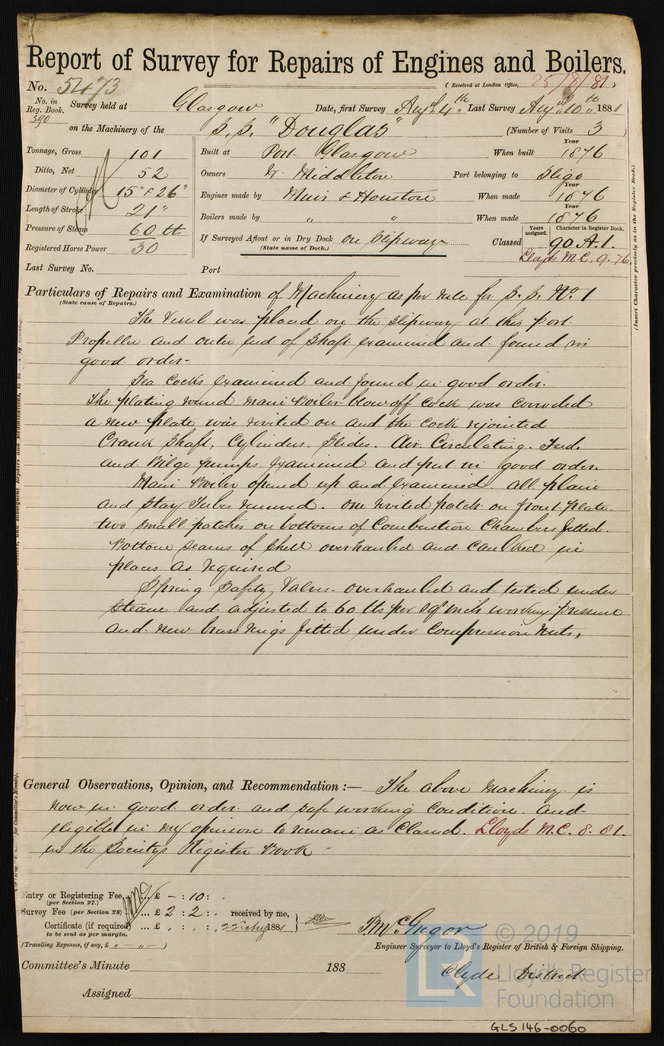 Report of Survey for Repairs of Engines and Boilers.
No. 5473 (Received at London Office, 25/8/81
No. in Reg. Book. 390 Survey held at Glasgow Date, first Survey Augt 4th Last Survey Augt 10th 1881
on the Machinery of the S.S. "Douglas" (Number of Visits 3)
Tonnage, Gross 101
Ditto, Net 52
Diameter of Cylinders 15" & 26"
Length of Stroke 21"
Pressure of Steam 60 lb
Registered Horse Power 30
Built at Port Glasgow When built Year 1876
Owners W. Middleton Port belonging to Sligo
Engines made by Muir & Houston When made Year 1876
Boilers made by " " When made 1876
If Surveyed Afloat or in Dry Dock On Slipway
(State name of Dock.)
Classed Years assigned. Character in Register Book. 90 A.1.
Lloyds M.C. 9.76
(Insert Character precisely as in the Register Book.)
Last Survey No. Port
Particulars of Repairs and Examination of Machinery as per rule for S.S. No. 1
(State cause of Repairs.)
The Vessel was placed on the slipway at this port
Propeller and outer end of shaft examined and found in
good order.
Sea Cocks examined and found in good order.
The plating round main boiler blow off cock was corroded
a new plate was rivited on and the cock rejointed
Crank Shaft, Cylinders. Slides. Air Circulating. Feed.
and Bilge pumps. examined and put in good order.
Main boiler opened up and examined. all plain
and Stay Tubes renewed. one rivited patch on front plate
two small patches on bottoms of Combustion Chambers fitted.
Bottom seams of shell overhauled and caulked in
places as required
Spring Safety Valves. overhauled and tested under
steam and adjusted to 60 lbs per sqr inch working pressure
and new brass rings fitted under compression nuts.
General Observations, Opinion, and Recommendation :— The above Machinery is
now in good order and safe working condition and
eligible in my opinion to remain as Classed. Lloyds M.C. 8.81.
in the Society's Register Book
Entry or Registering Fee £ - : 10 :
(per Section 27.)
Survey Fee (per Section 28) ... £ 2 : 2 : received by me,
Certificate (if required) ... £ 1881
to be sent as per margin.
(Travelling Expenses, if any, £ )
McGregor
Engineer Surveyor to Lloyd's Register of British & Foreign Shipping.
Clyde District
Committee's Minute 188
Assigned
© 2019
LR
Lloyd's Register
Foundation
GLS146-0060